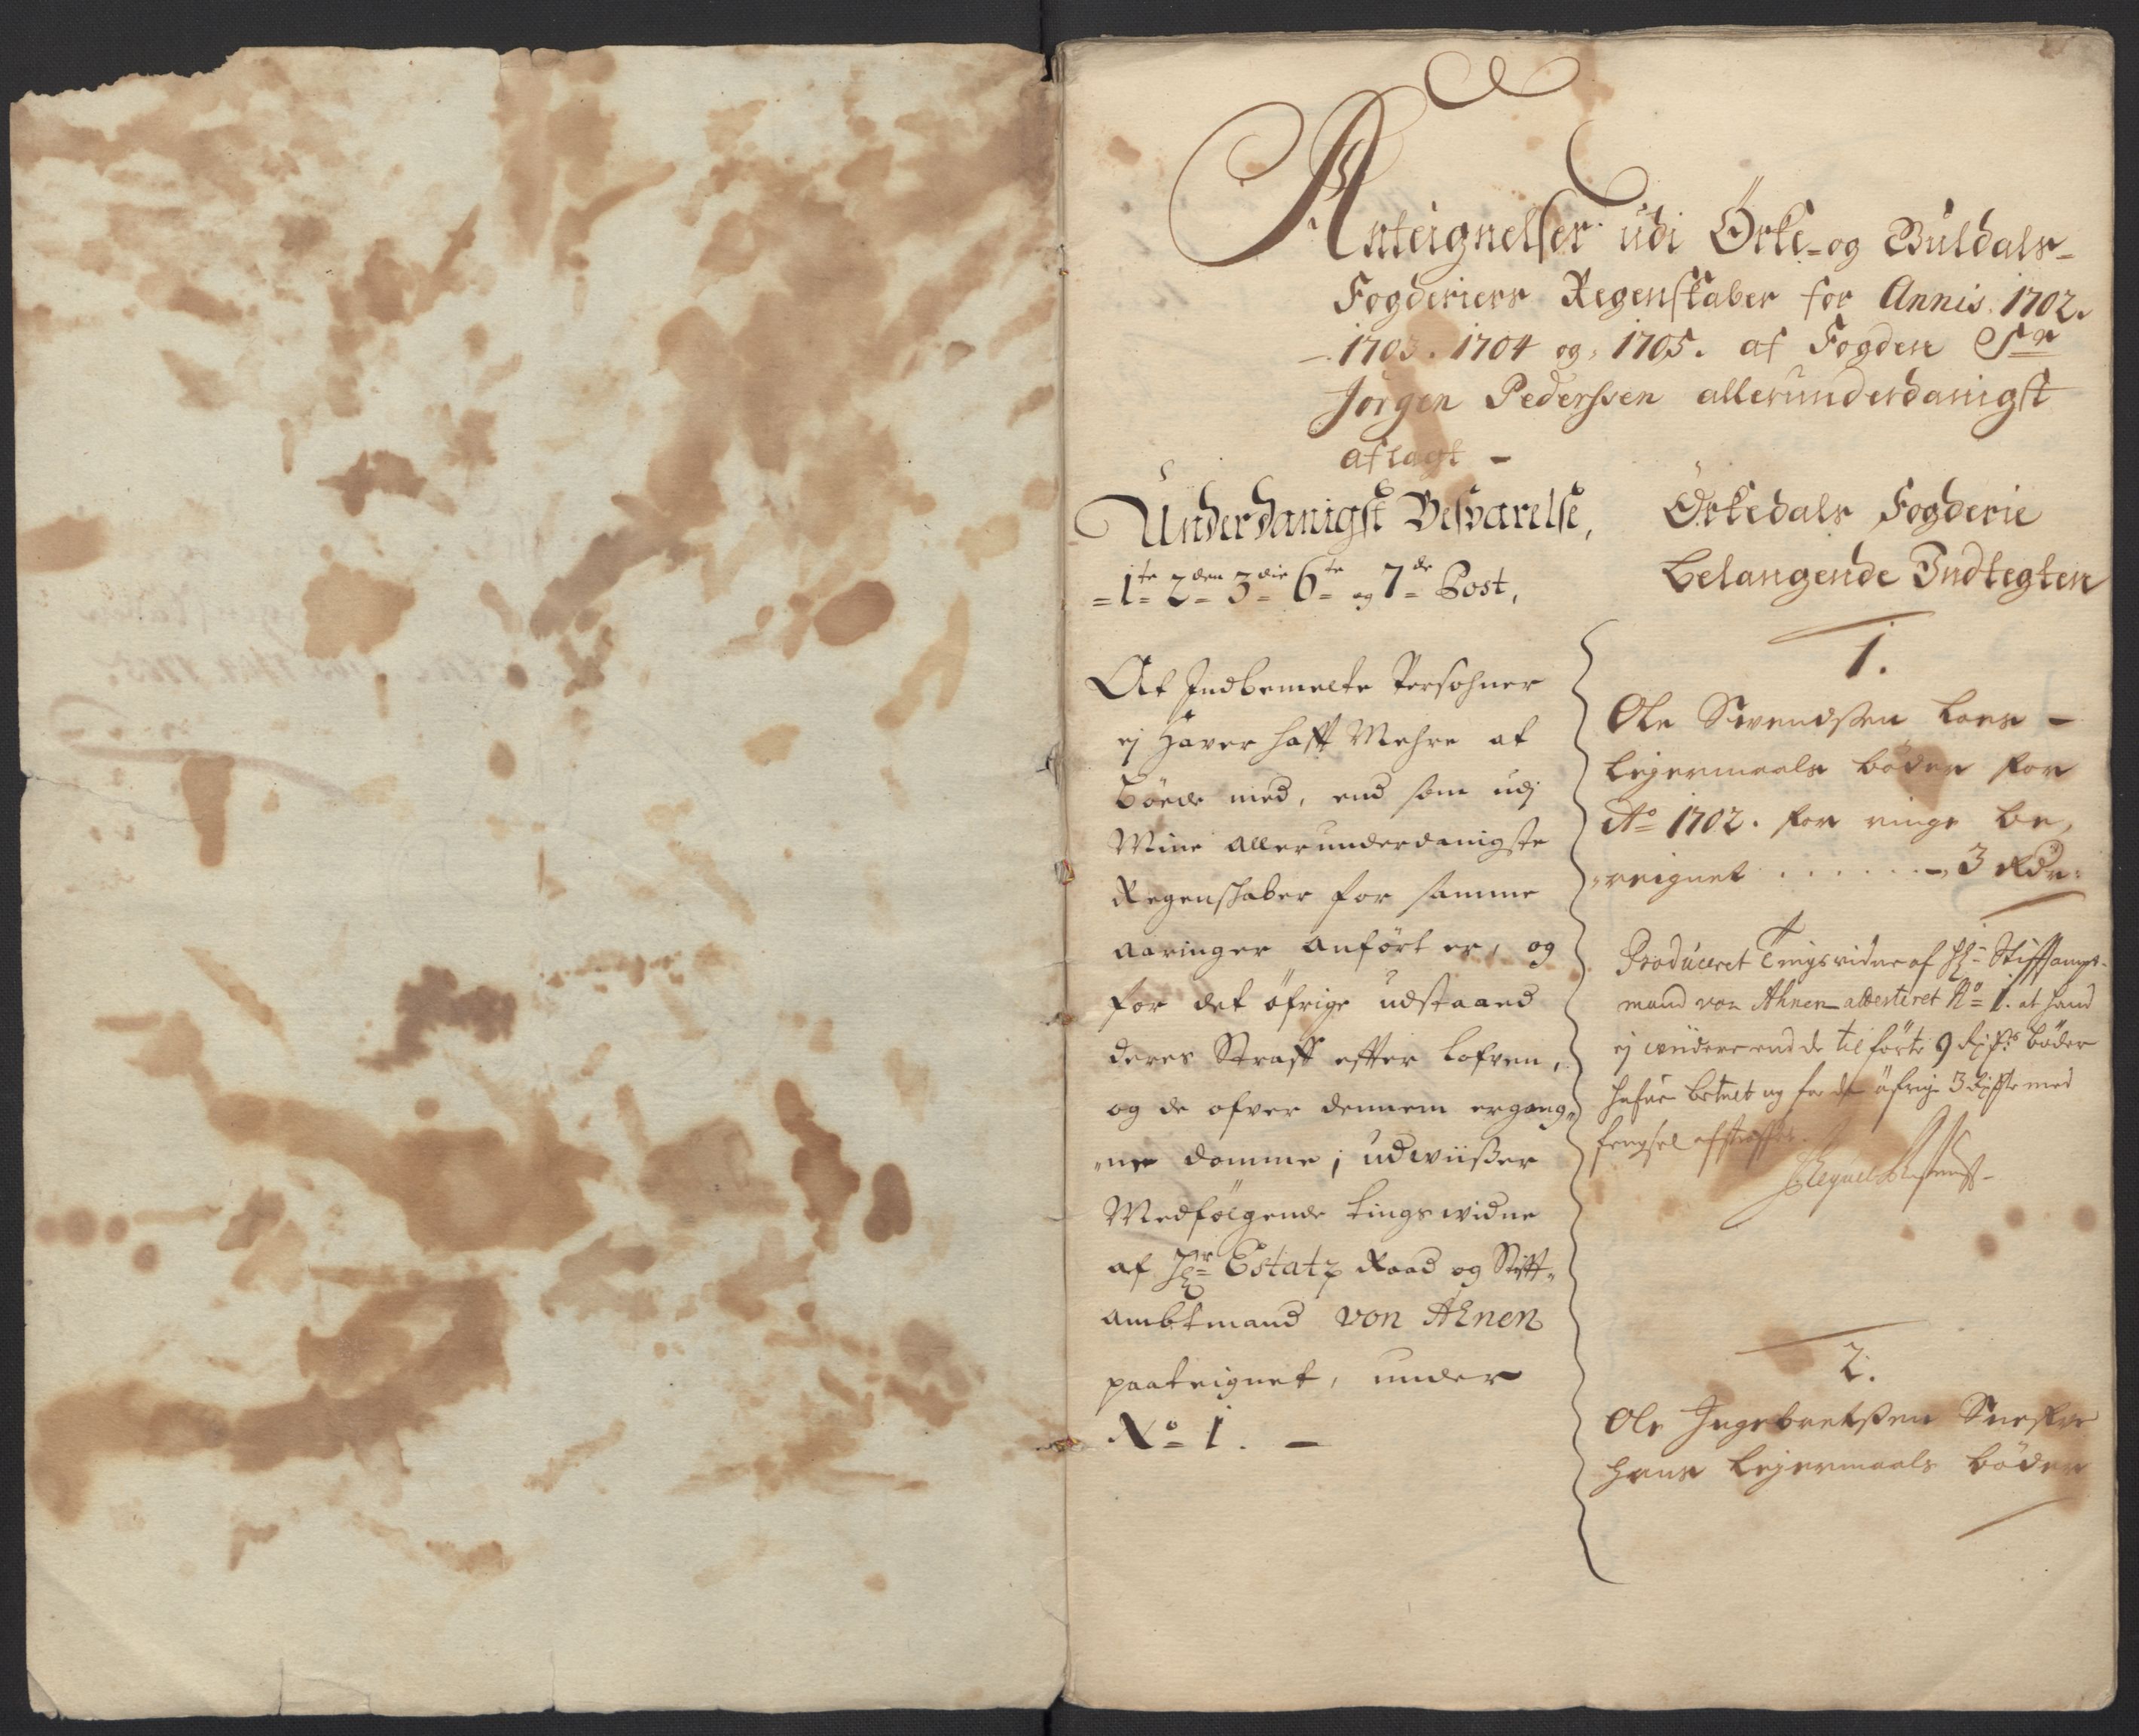 Anteignelser udi Örke- og Guldals-
Fogderiers Regenskaber for Annis 1702.
1703. 1704 og 1705. af Fogden Sr
Jörgen Pederssen allerunderdanigst
aflagt -
Underdanigst Besvarelse,
1te 2den 3die 6te og 7de Post,
At Indbemelte Persohner
ej haver hafft Mehre at
böede med, end som udj
Mine allerunderdanigste
Regenskaber for samme
aaringer anfört er, og
for det öfrige udstaaed
deres Straff effter lofven,
og de ofver dennem ergang„
„ne domme; udwiißer
Medfölgende tingswidne
af Hr Estatz Raad og Stifft„
ambtmand von Ahnen
paateignet, under
No 1. -
Örkedals Fogderie
Belangende Indtegten
1.
Ole Svendßen
Lejermaals böder for
Ao 1702. for ringe be„
„reignet . . . . . . - 3 Rdr:
Produceret Tingsvidne af Hr Stifftampt-
mand von Ahnen attesteret No 1. at hand
ej widere end de tilförte 9 böder
hafuer betalt og for de öfrige 3 med
fengsel afstraffet.
2.
Ole Ingebretßen
hans Lejermaals böder